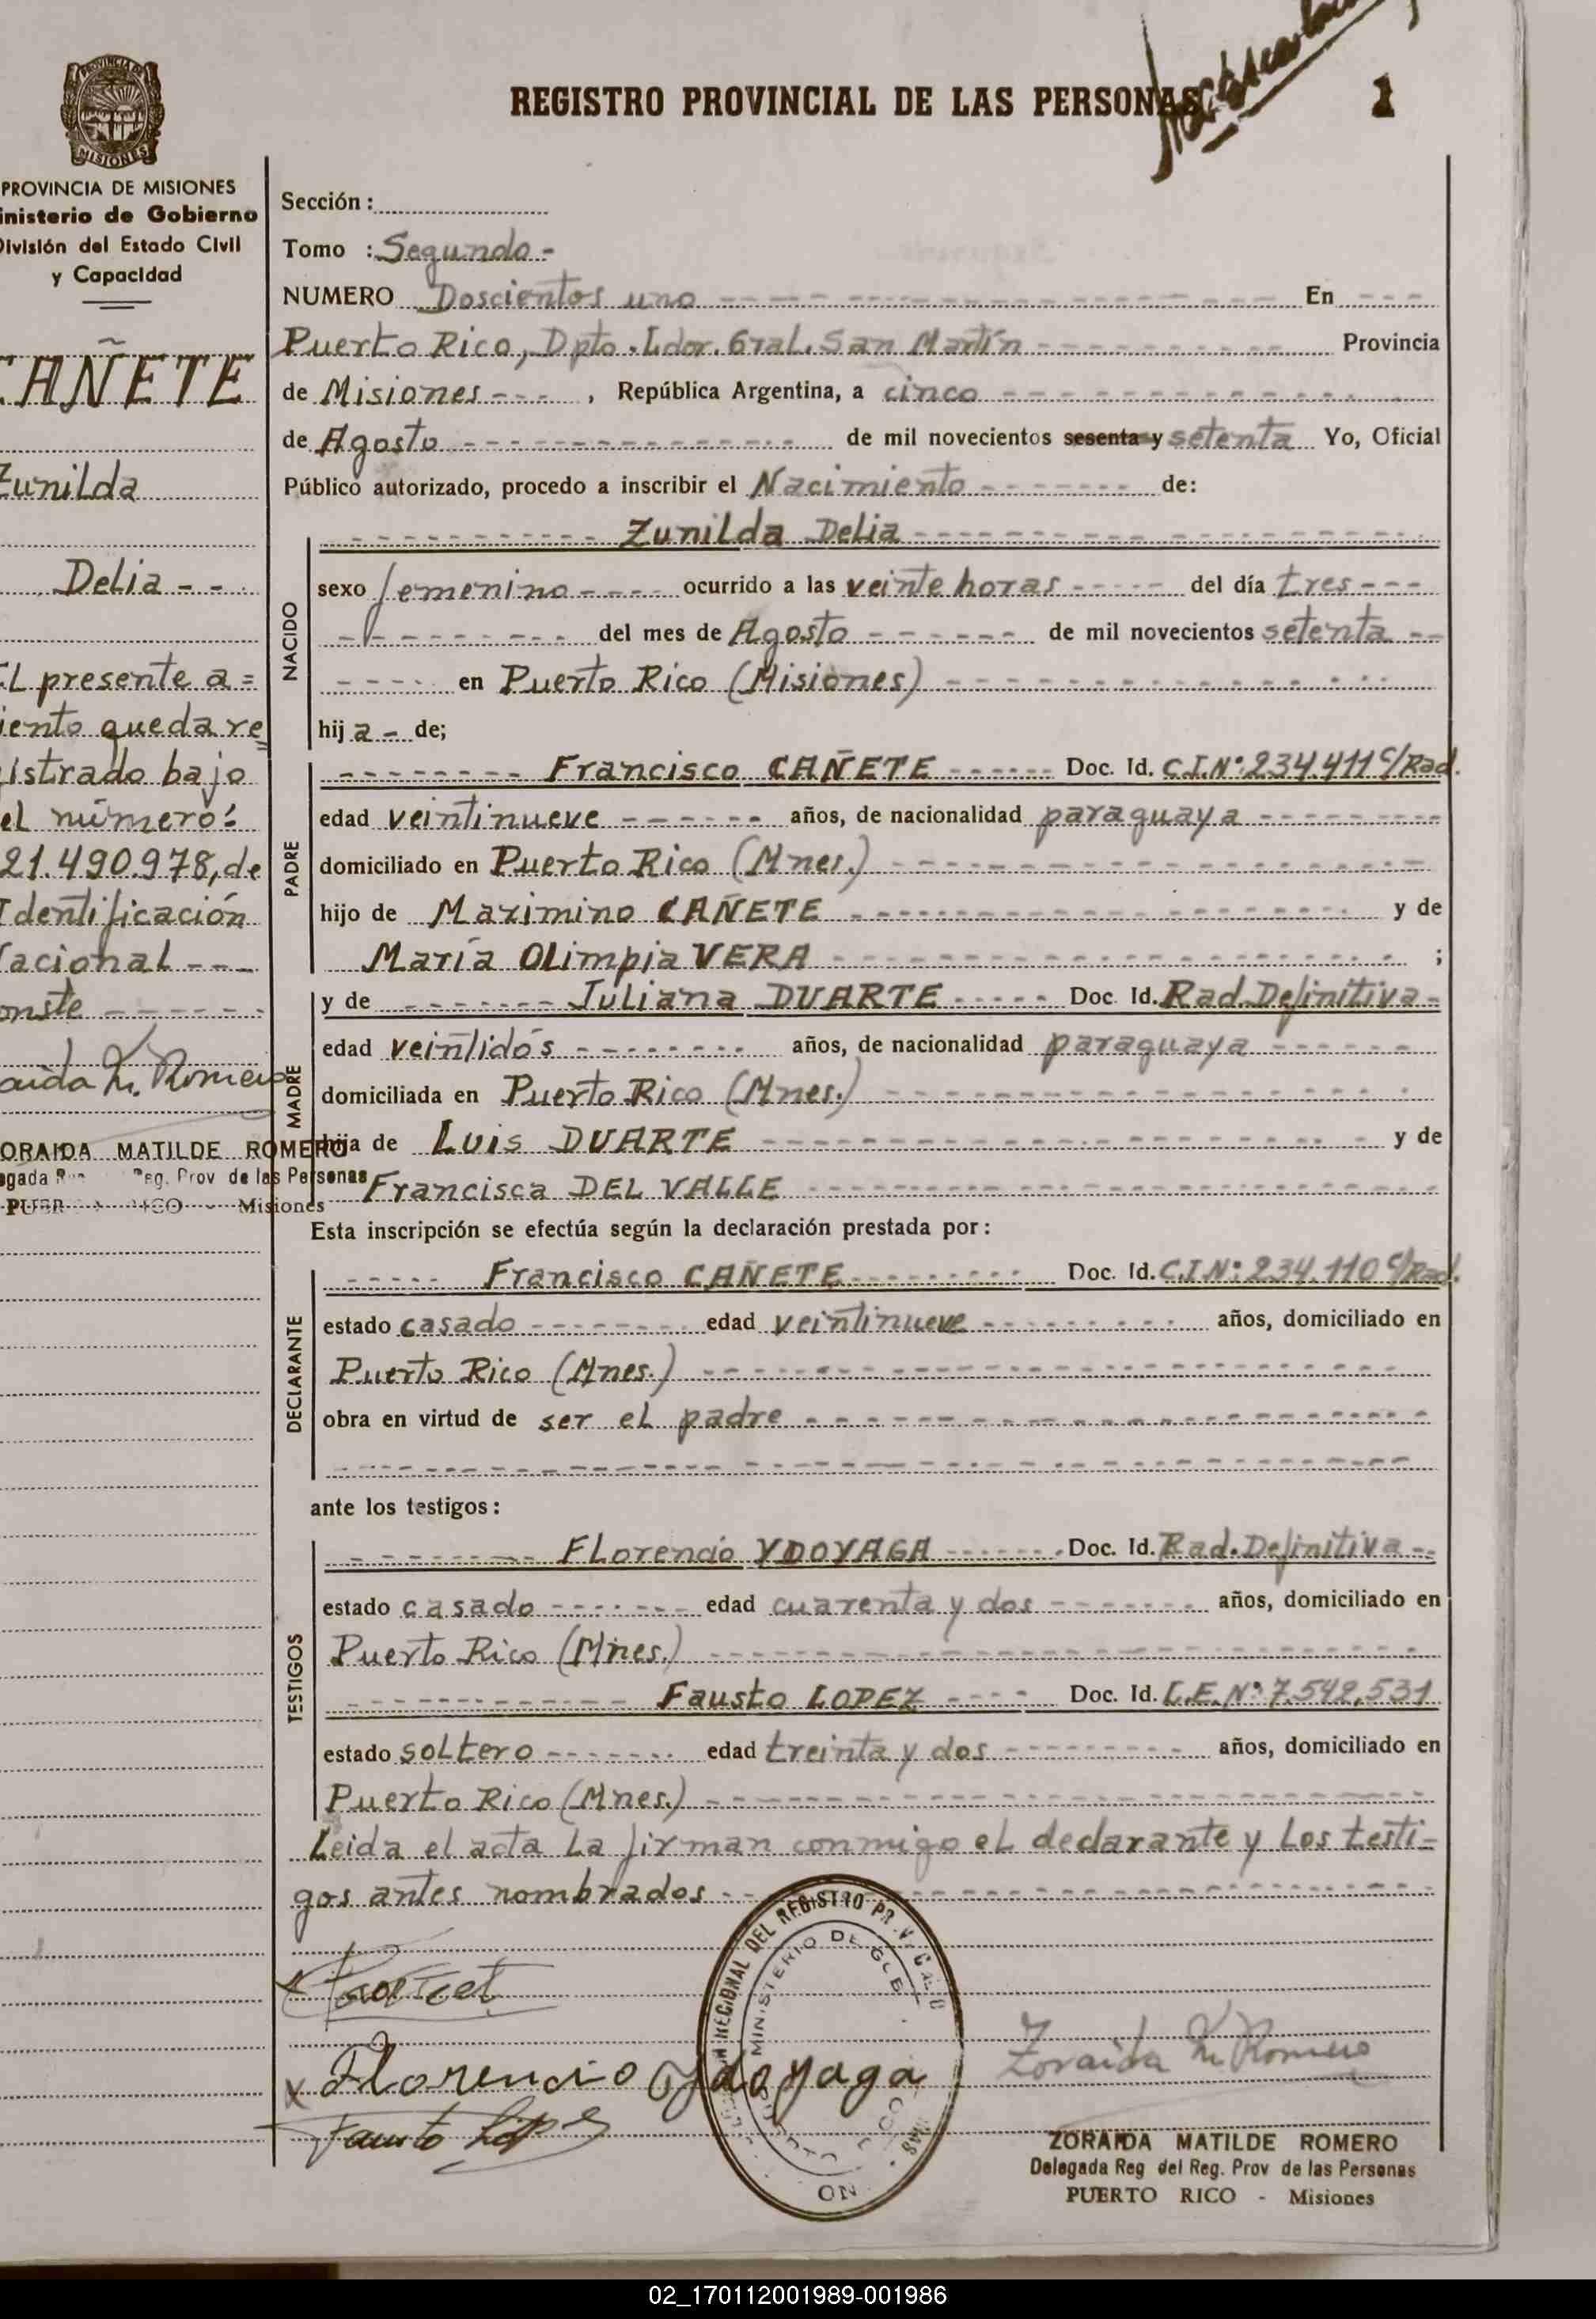 REGISTRO PROVINCIAL DE LAS PERSONAS
1
MISIONES
PROVINCIA DE MISIONES
inisterio de Gobierno
División del Estado Civil
y Capacidad
CAÑETE
Zunilda
Delia - -
EL presente a=
iento queda re=
istrado bajo
el número:
21.490.978, de
Identificación
acional - - -
onste - - - - -
aida M. Romero
ORAIDA MATILDE ROMERO
egada Reg. Prov de las Personas
Misiones
Sección :
Tomo : Segundo -
NUMERO Doscientos uno - - - En - - -
Puerto Rico, Dpto. Ldor. Gral. San Martín - - - Provincia
de Misiones - - - , República Argentina, a cinco - - -
de Agosto - - - de mil novecientos sesenta y setenta Yo, Oficial
Público autorizado, procedo a inscribir el Nacimiento - - - de:
NACIDO
- - - Zunilda Delia - - -
sexo femenino - - - ocurrido a las veinte horas - - - del día tres - - -
- - - del mes de Agosto - - - de mil novecientos setenta - -
- - - en Puerto Rico (Misiones) - - -
hij a - de;
PADRE
- - - Francisco CAÑETE - - - Doc. Id. C.I.Nº:234.411 c/Rad.
edad veintinueve - - - años, de nacionalidad paraguaya - - -
domiciliado en Puerto Rico (Mnes.) - - -
hijo de Maximino CAÑETE - - - y de
María OLimpia VERA - - - ;
MADRE
y de - - - Juliana DUARTE - - - Doc. Id. Rad. Definitiva -
edad veintidós - - - años, de nacionalidad paraguaya - - -
domiciliada en Puerto Rico (Mnes.) - - -
hija de Luis DUARTE - - - y de
Francisca DEL VALLE - - -
Esta inscripción se efectúa según la declaración prestada por :
DECLARANTE
- - - Francisco CAÑETE - - - Doc. Id. C.I.N: 234.110 c/Rad.
estado casado - - - edad veintinueve - - - años, domiciliado en
Puerto Rico (Mnes.) - - -
obra en virtud de ser el padre - - -
ante los testigos :
TESTIGOS
- - - Florencio YDOYAGA - - - Doc. Id. Rad. Definitiva - -
estado casado - - - edad cuarenta y dos - - - años, domiciliado en
Puerto Rico (Mnes.) - - -
- - - Fausto LOPEZ - - - Doc. Id. L.E. Nº 7.542.531
estado soltero - - - edad treinta y dos - - - años, domiciliado en
Puerto Rico (Mnes.) - - -
Leida el acta la firman conmigo el declarante y los testi=
gos antes nombrados - - -
DEL REGISTRO
MINISTERIO DE
Florencio Ydoyaga
Zoraida M Romero
Fausto López
ZORAIDA MATILDE ROMERO
Delegada Reg del Reg. Prov de las Personas
PUERTO RICO - Misiones
02_170112001989-001986